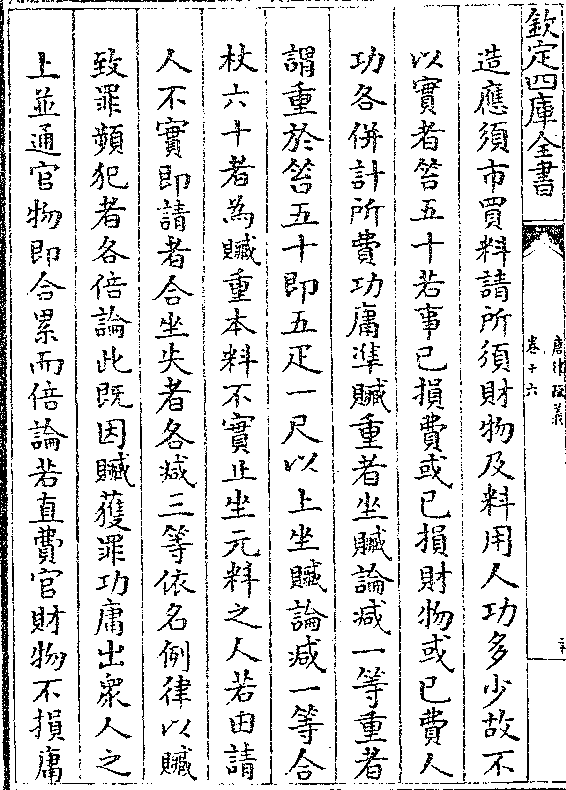 欽定四庫全書
唐律疏義
卷十六
造應須市買料請所須財物及料用人功多少故不
以實者笞五十若事已損費或已損財物或已費人
功各併計所費功庸準贓重者坐贓論减一等重者
謂重於笞五十即五疋一尺以上坐贓論减一等合
杖六十者為贓重本料不實止坐元料之人若由請
人不實即請者合坐失者各减三等依名例律以贓
致罪頻犯者各倍論此既因贓獲罪功庸出衆人之
上並通官物即合累而倍論若直費官財物不損庸